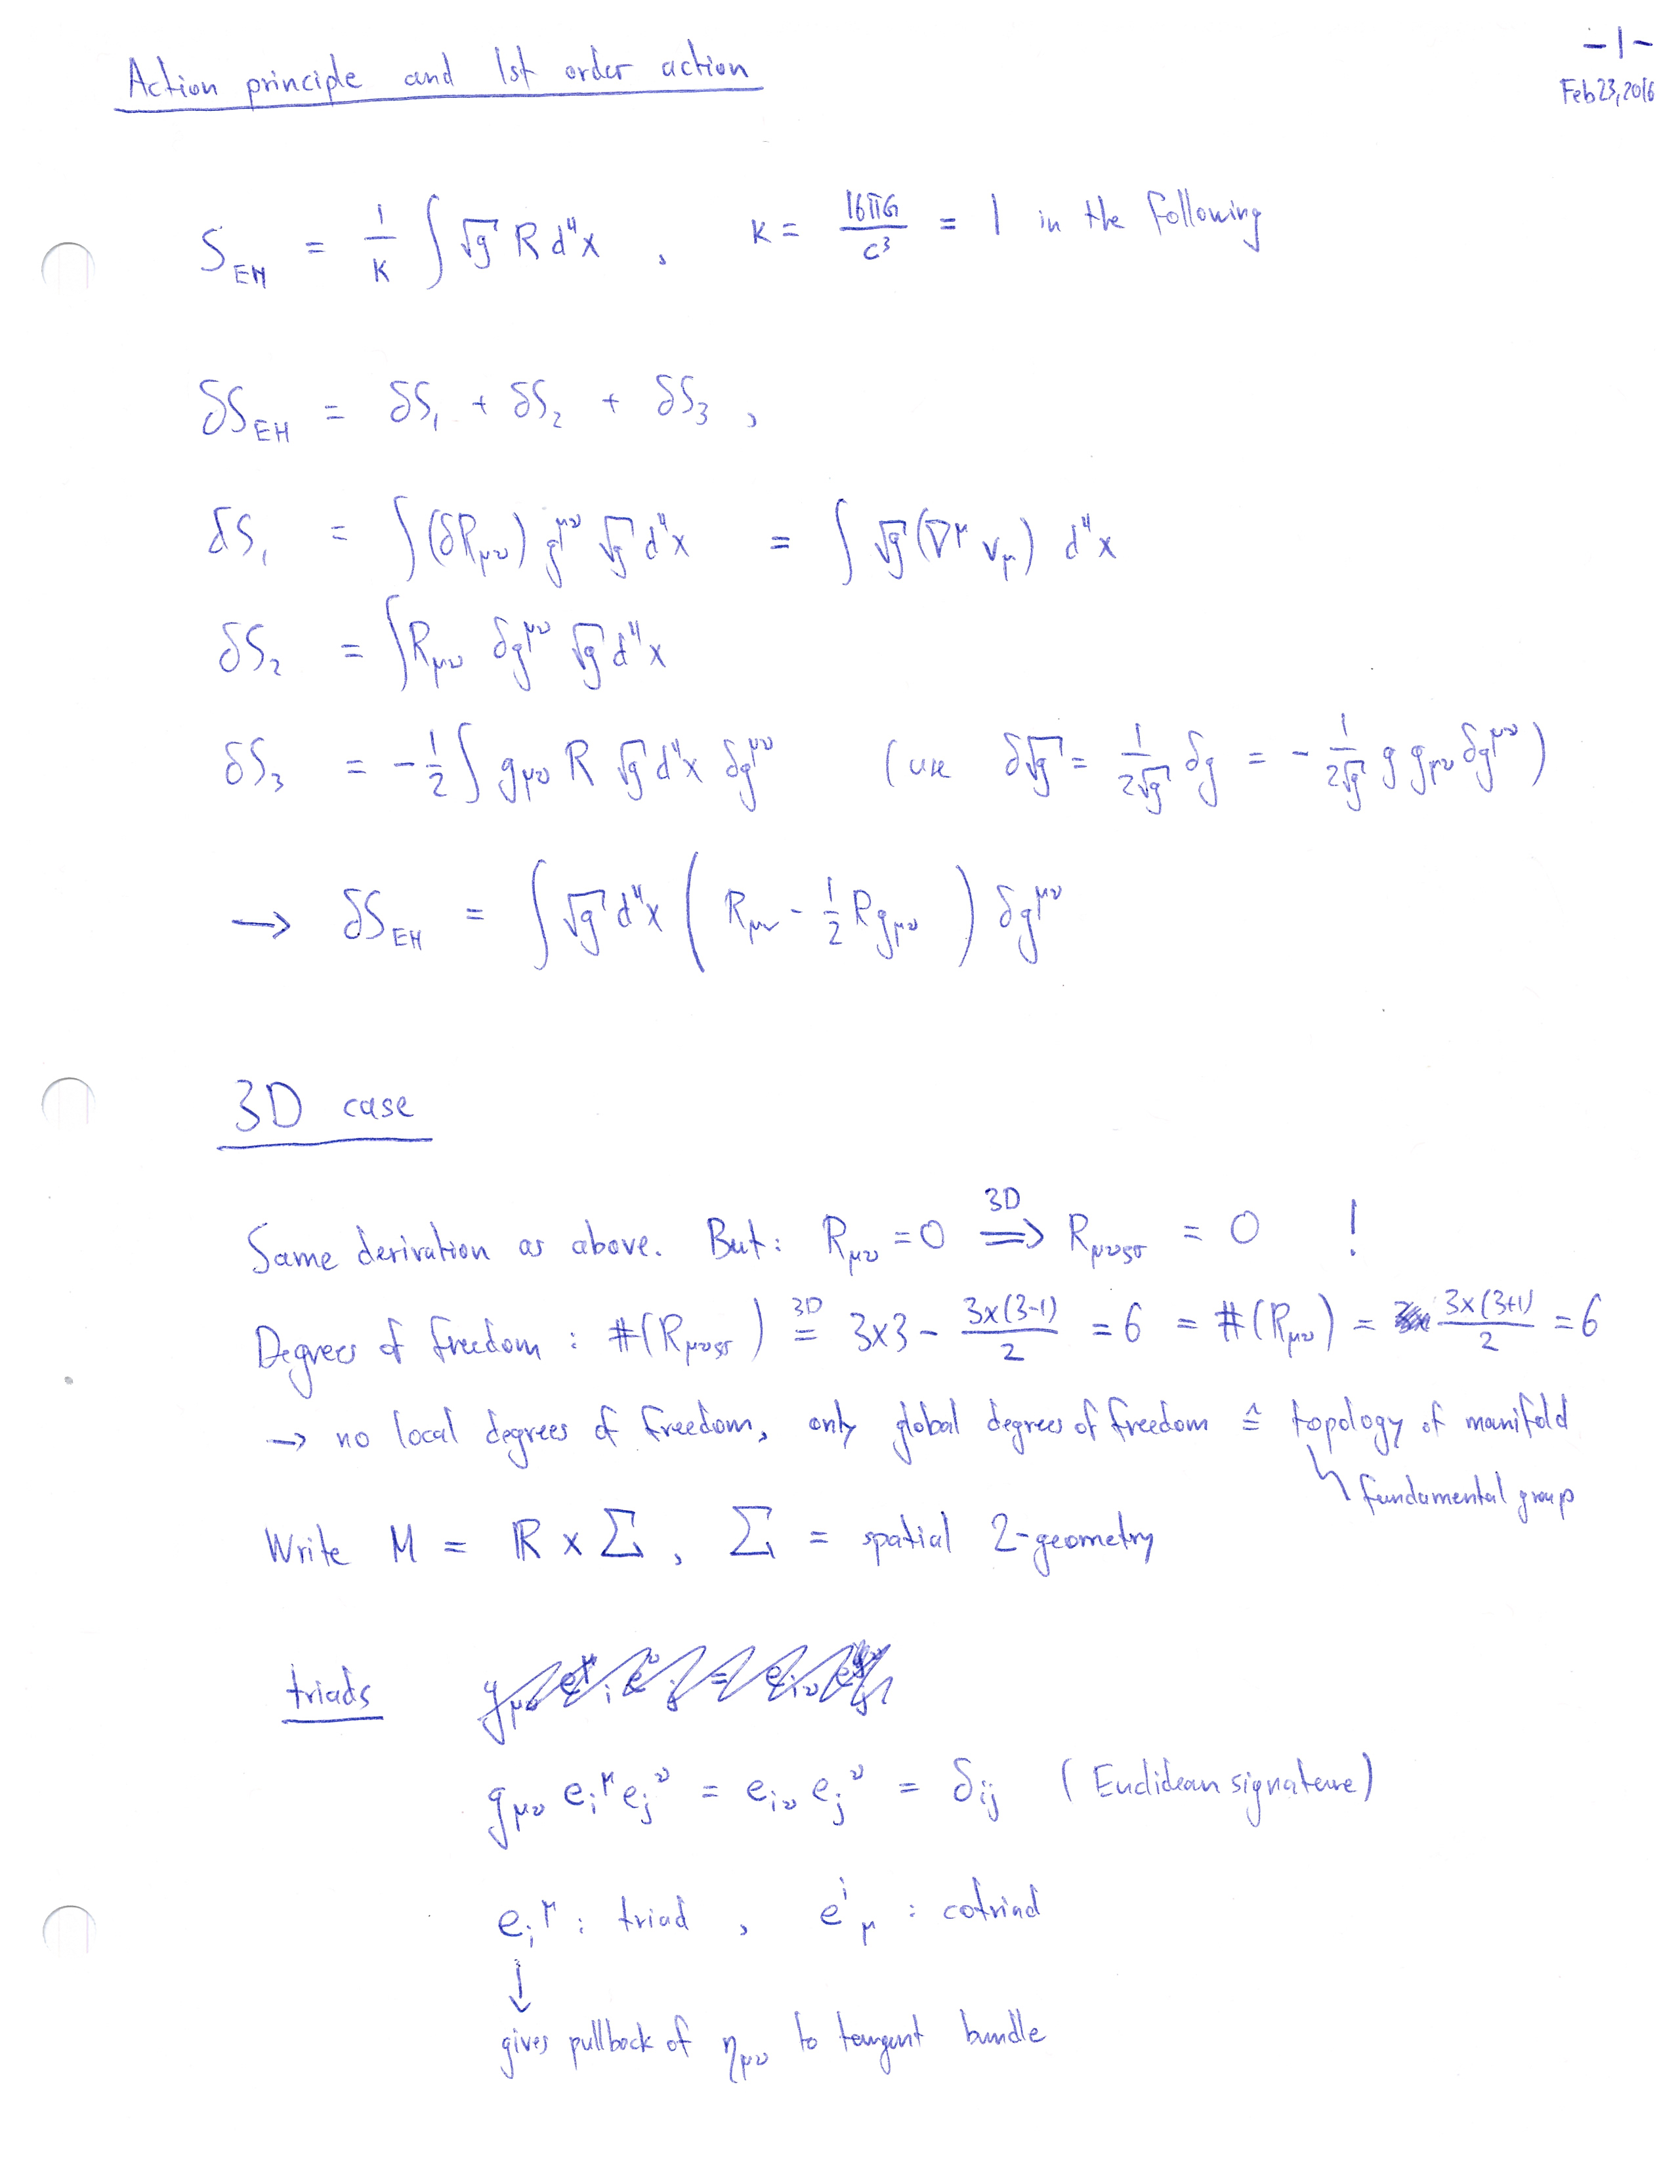 -1-
Feb 23, 2016
Action principle and 1st order action
S_EH = 1/κ ∫ √g R d⁴x , κ = 16πG/c³ = 1 in the following
δS_EH = δS₁ + δS₂ + δS₃ ,
δS₁ = ∫ (δR_μν) g^μν √g d⁴x = ∫ √g (∇^μ v_μ) d⁴x
δS₂ = ∫ R_μν δg^μν √g d⁴x
δS₃ = -1/2 ∫ g_μν R √g d⁴x δg^μν (use δ√g = 1/(2√g) δg = - 1/(2√g) g g_μν δg^μν)
→ δS_EH = ∫ √g d⁴x ( R_μν - 1/2 R g_μν ) δg^μν
3D case
Same derivation as above. But: R_μν = 0 3D⟹ R_μνρσ = 0 !
Degrees of freedom : #(R_μνρσ) 3D= 3x3 - 3x(3-1)/2 = 6 = #(R_μν) = 3x(3+1)/2 = 6
→ no local degrees of freedom, only global degrees of freedom ≙ topology of manifold
fundamental group
Write M = ℝ x Σ , Σ = spatial 2-geometry
triads
g_μν e_i^μ e_j^ν = e_iν e_j^ν = δ_ij (Euclidean signature)
e_i^μ : triad , e^i_μ : cotriad
↓
gives pullback of η_μν to tangent bundle